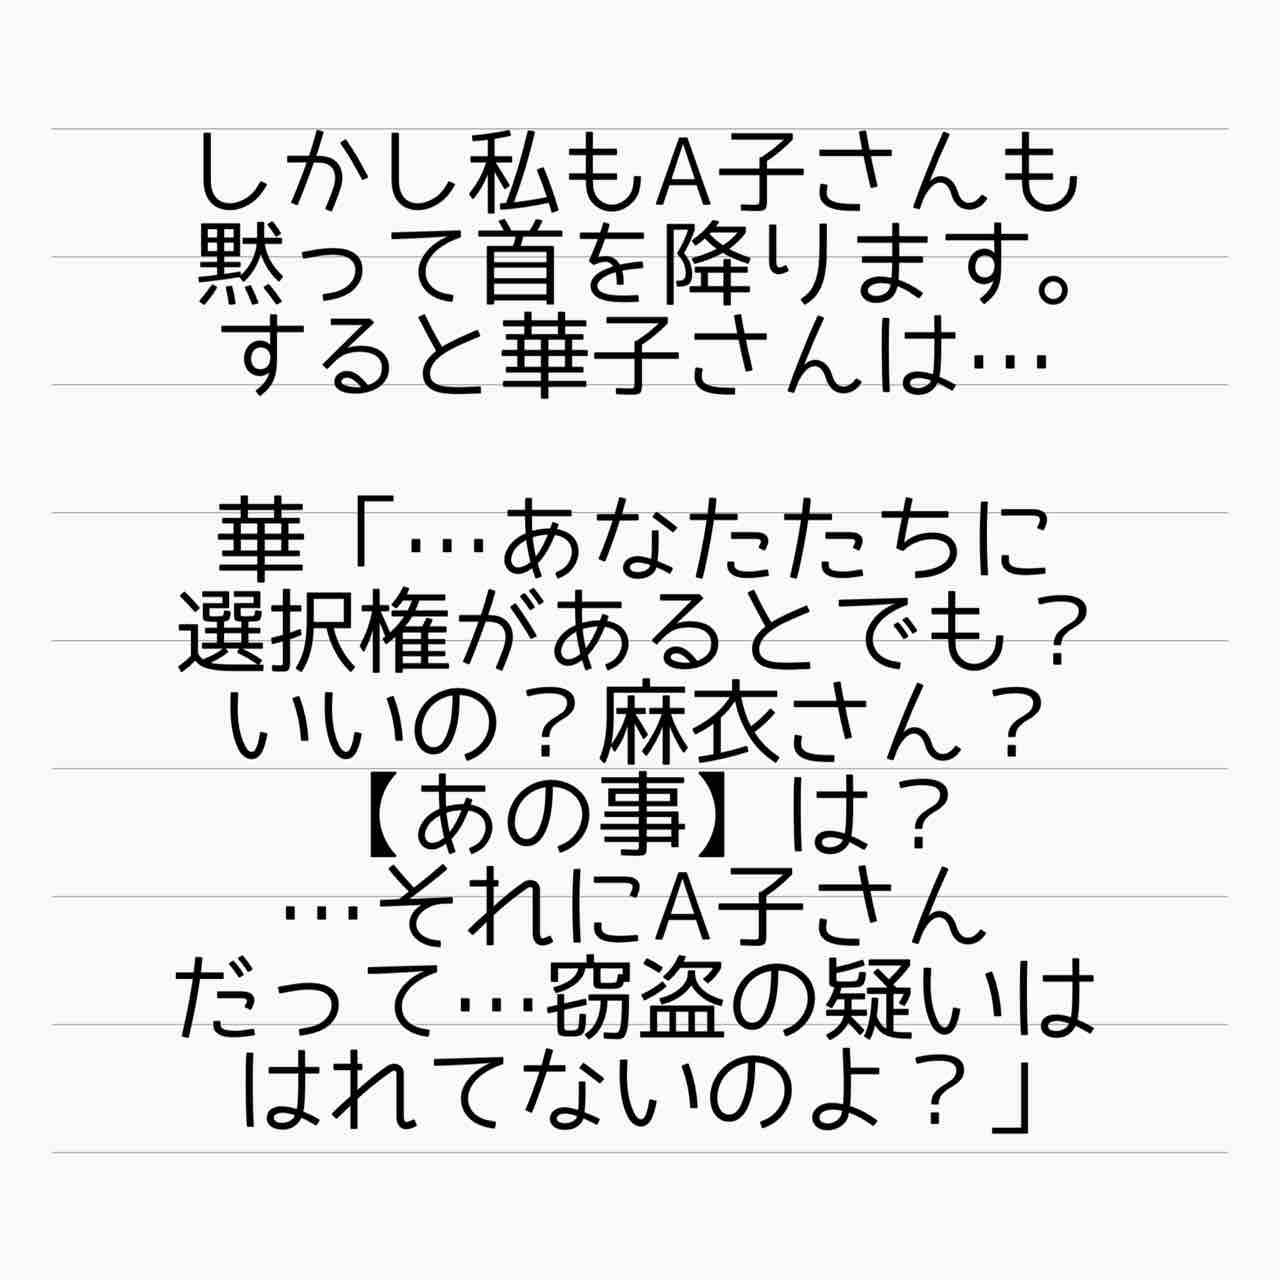 しかし私もA子さんも
黙って首を降ります。
すると華子さんは…
華「…あなたたちに
選択権があるとでも？
いいの？麻衣さん？
【あの事】は？
…それにA子さん
だって…窃盗の疑いは
はれてないのよ？」